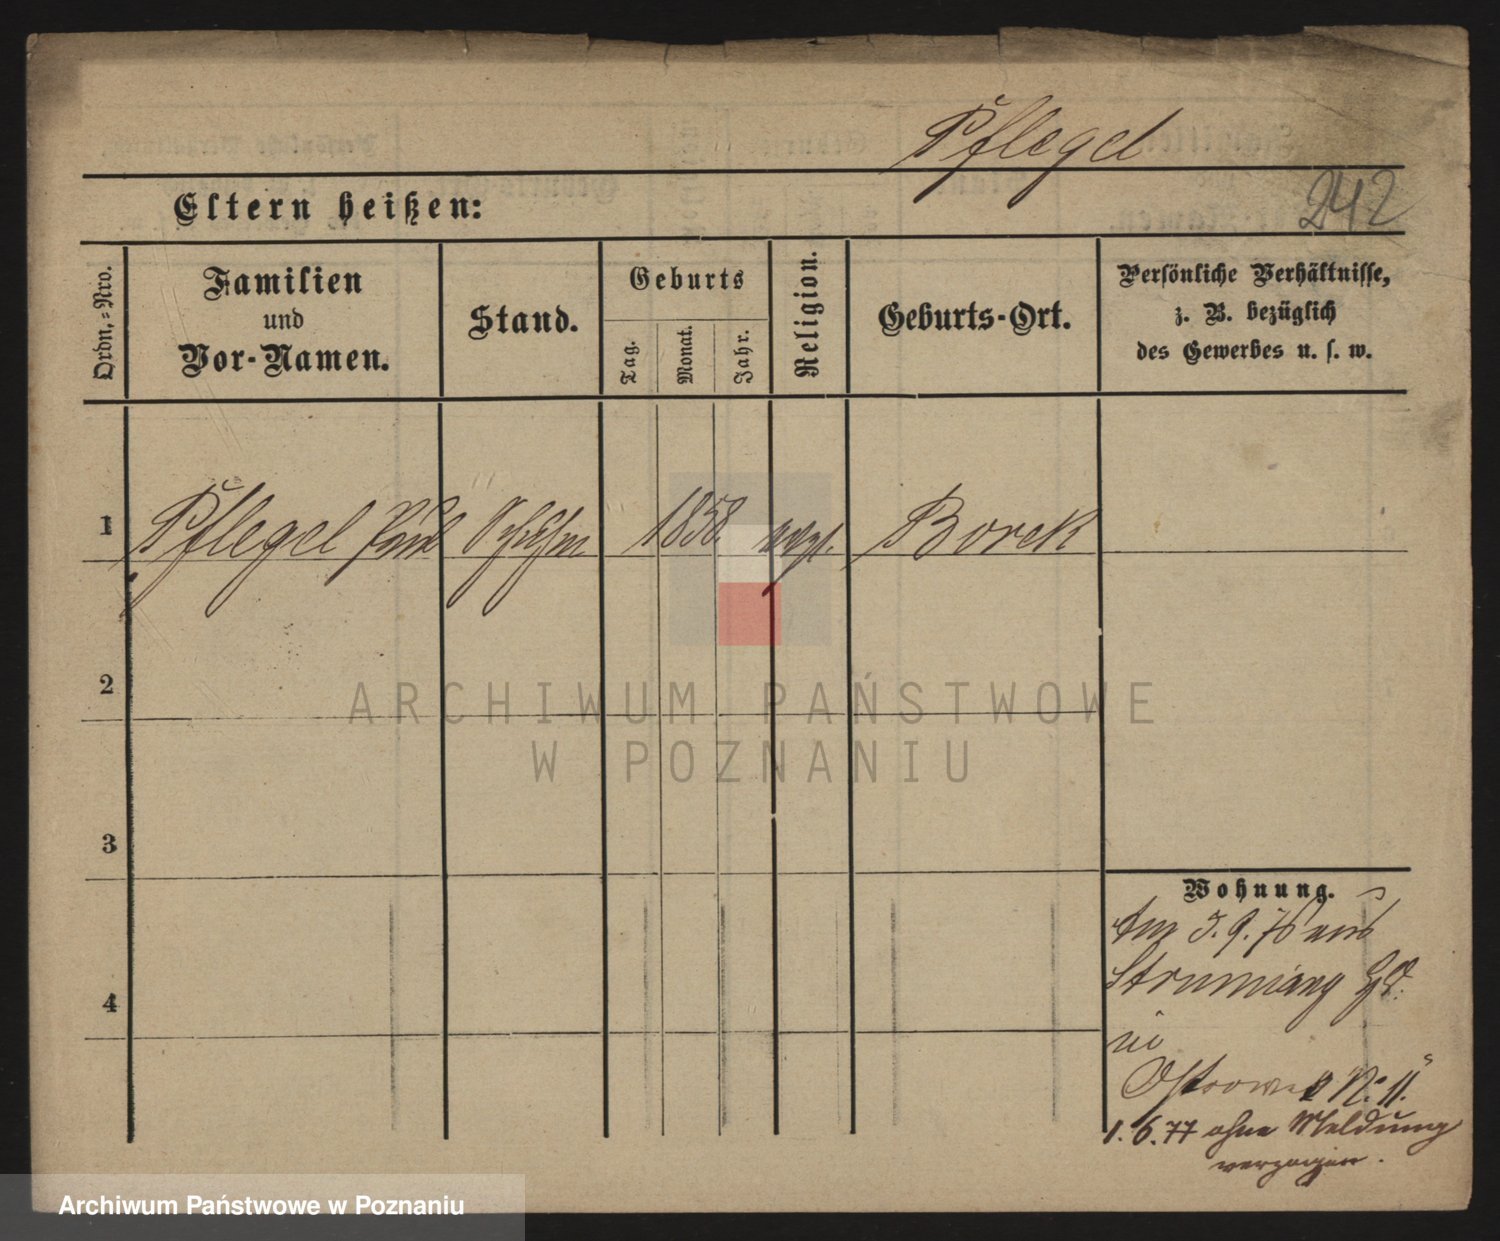 Pflegel
Eltern heißen:
242
Ordn.-Nro.
Familien
und
Vor-Namen.
Stand.
Geburts
Tag.
Monat.
Jahr.
Religion.
Geburts-Ort.
Persönliche Verhältnisse,
z. B. bezüglich
des Gewerbes u. s. w.
1
Pflegel Paul
1858.
Borek
2
3
4
Wohnung.
Am 3.9.76 aus
in
Ostrowek No 11.
1.6.77 ohne Meldung
verzogen.
ARCHIWUM PAŃSTWOWE
W POZNANIU
Archiwum Państwowe w Poznaniu